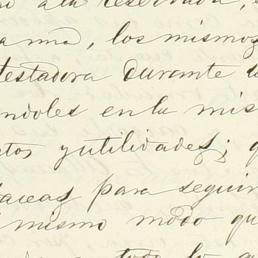 a la reservada,
los mismos
testadora durante
ndoles en la mis
tos y utilidades; q
aceas para seguir
mismo modo qu
todo lo